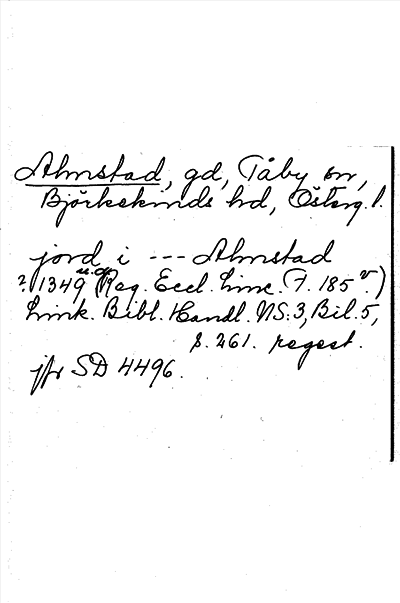 Almstad, gd, Tåby sn,
Björkekinds hd, Österg. l.
jord i --- Almstad
? 1349 u.o. (Reg. Eccl. Linc. F. 185 v.)
Link. Bibl. Handl. NS:3, Bil. 5,
s. 261. regest.
jfr SD 4496.